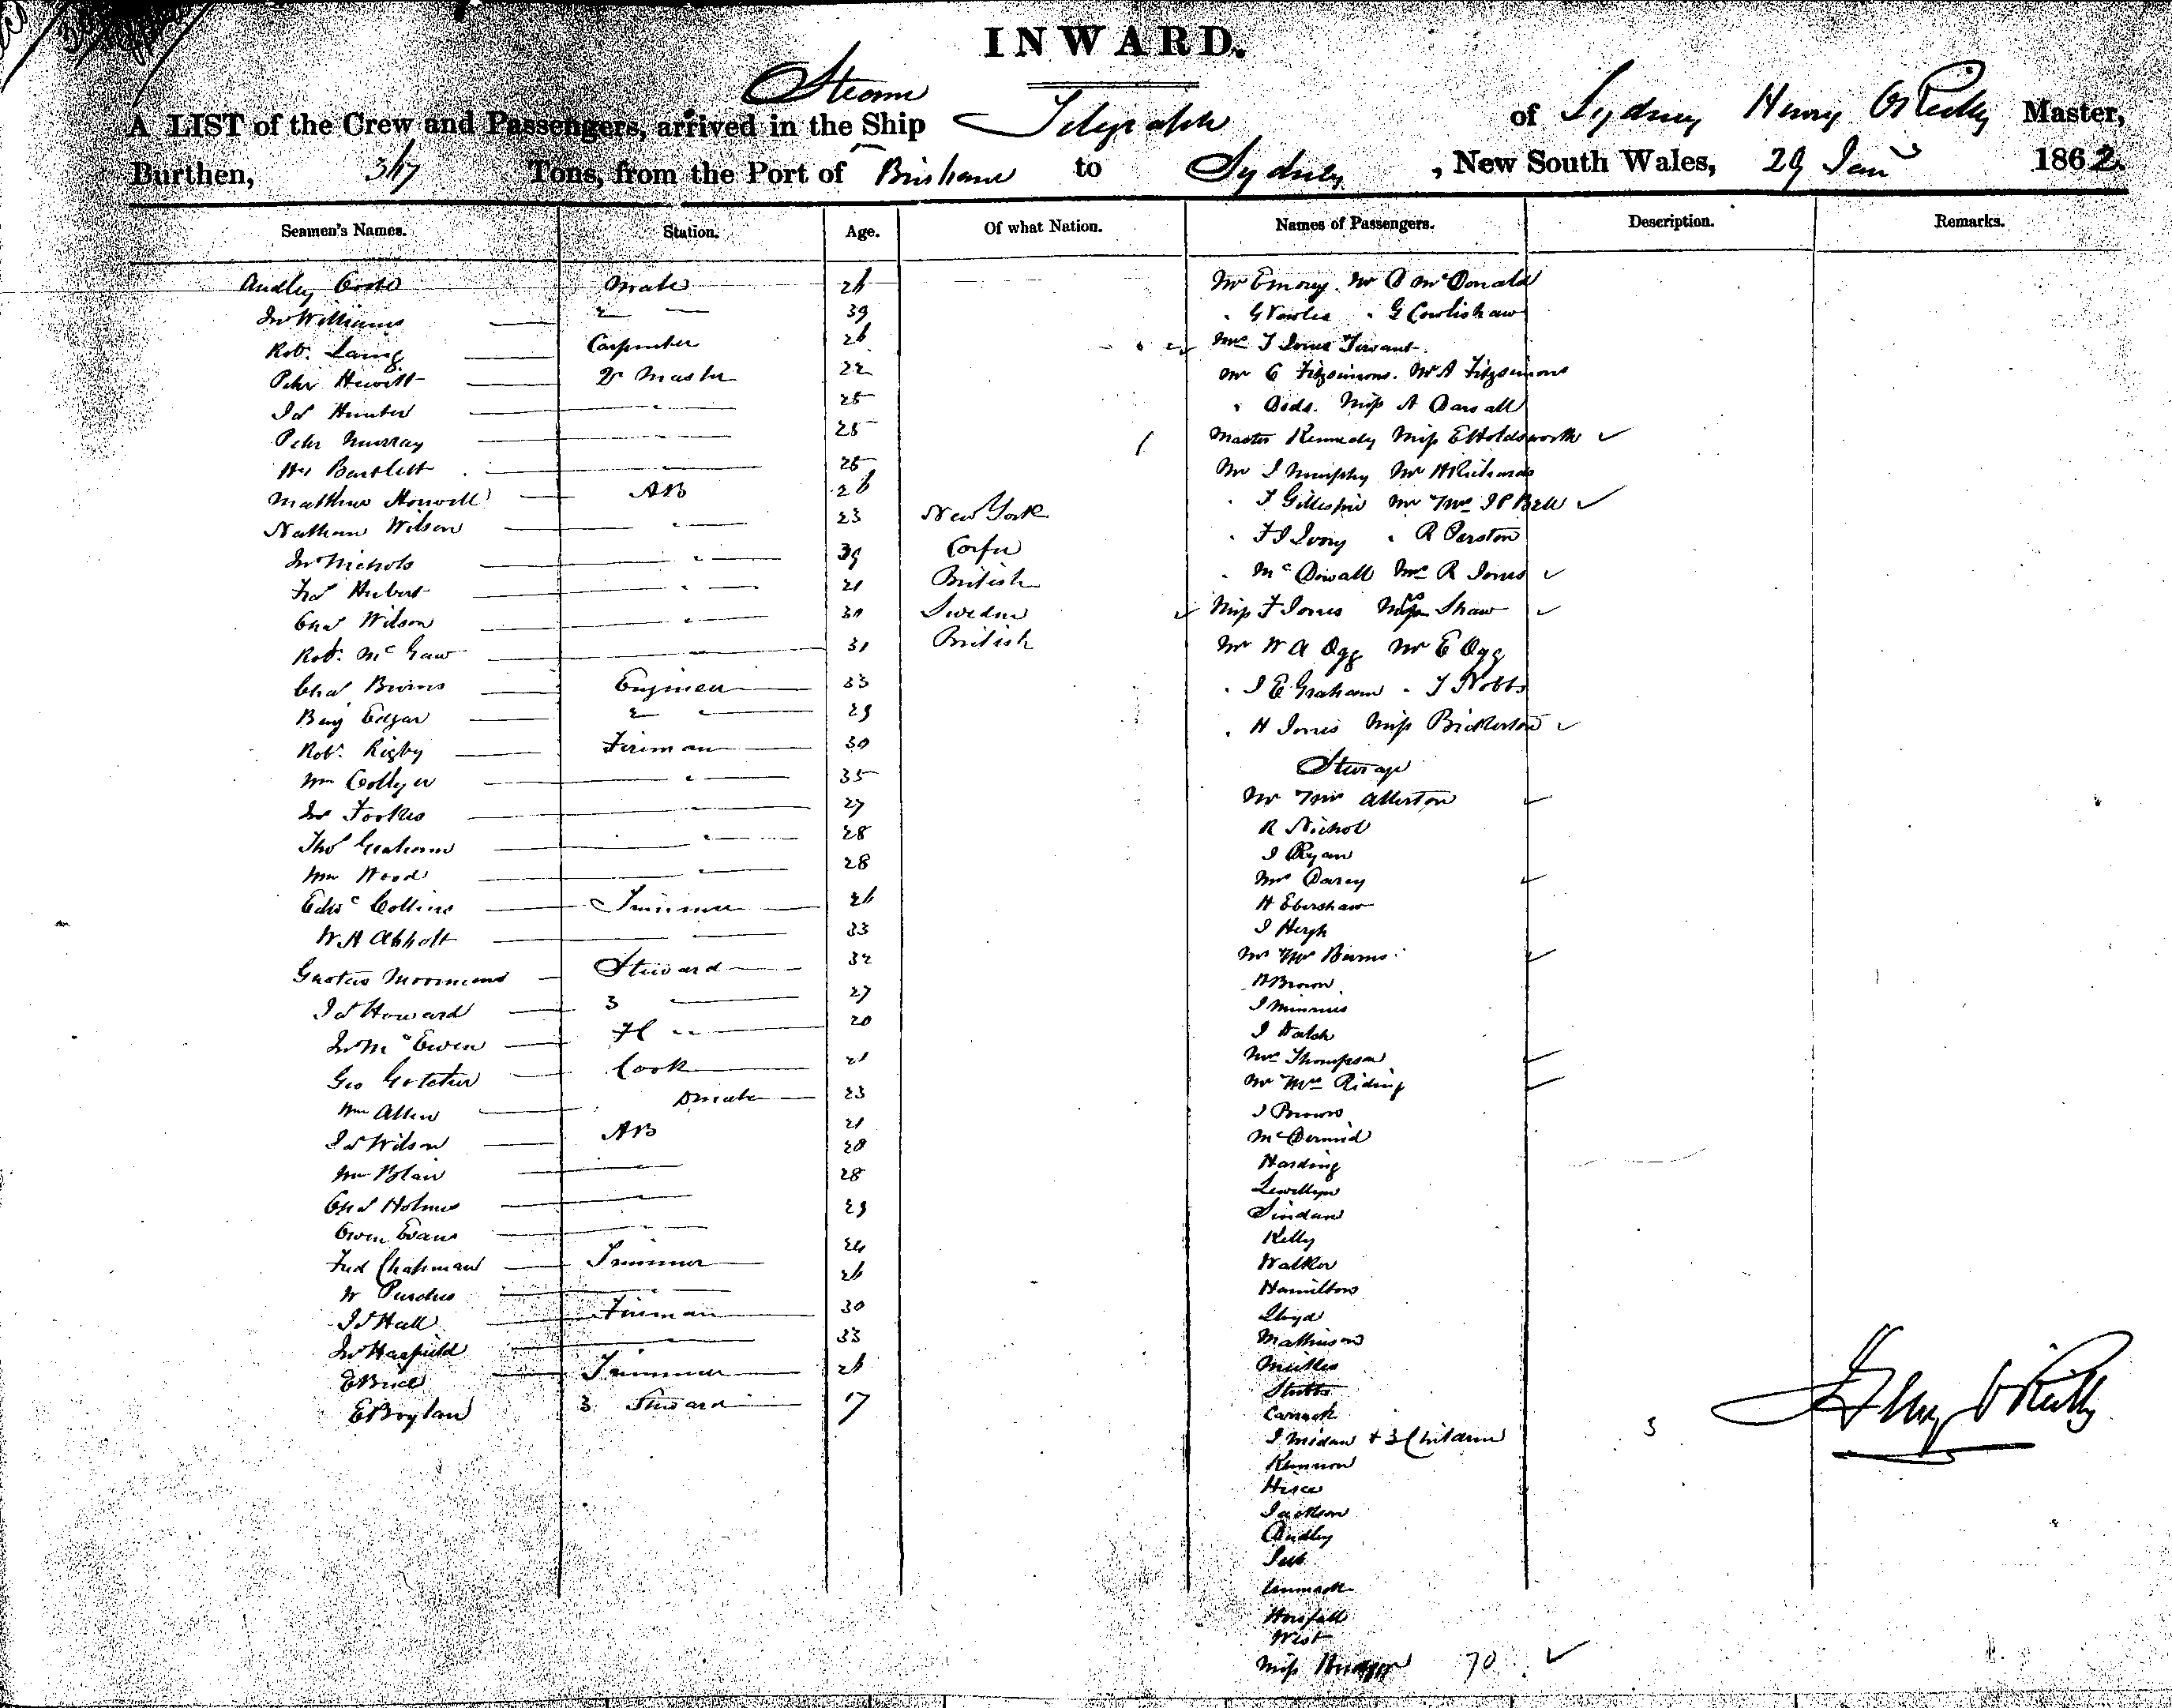 INWARD.
Steam
A LIST of the Crew and Passengers, arrived in the Ship Telegraph of Sydney Henry O'Reilly Master,
Burthen, 367 Tons, from the Port of Brisbane to Sydney, New South Wales, 29 Jany 1862.
Seamen's Names. Station. Age. Of what Nation. Names of Passengers. Description. Remarks.
Audley Coote Mate 26
Jno Williams 2 — 39
Robt. Laing Carpenter 26
Peter Hewitt Qr Master 22
Js Hunter " 25
Peter Murray " 25
Hy Bartlett " 25
Matthew Howell AB 26
Nathan Wilson " 23 New York
Jno Nichols " 39 Corfu
Frs Hubert " 21 British
Chas Wilson " 30 Sweden
Robt. McGaw 31 British
Chas Burns Engineer 33
Benj Edgar 2 " 29
Robt. Rigby Fireman 30
Wm Collyer " 35
Jno Fookes " 27
Thos Graham " 28
Wm Wood " 28
Edwd Collins Trimmer 26
W H Abbott " 33
Gustus Moormend Steward 32
Js Howard 3 27
Jno McEwen 20
Geo Gotcher Cook 21
Wm Allen Do mate 23
Js Wilson AB 21
Wm Blair 20
Chas Holmes " 28
Owen Evans 29
Fred Chapman Trimmer 24
W Purdue " 26
Js Hall Fireman 30
Jno Haafield " 33
E Brice Trimmer 26
E Boylan 3 Steward 17
Mr Emory. Mr D McDonald
" G Vowles " G Cowlishaw
Mrs T Jones Servant
Mr C Fitzsimons. Mr A Fitzsimons
" Dods. Miss A Darvall
Master Kennedy Miss E Holdsworth
Mr J Murphy Mr H Richards
" T Gillespie Mr & Mrs J P Bell
" F J Ivory " R Perston
" McDowall Mrs R Jones
Miss F Jones Mrs Shaw
Mr W A Ogg Mr E Ogg
" J E Graham " T Nobbs
" H Jones Miss Bickerton
Steerage
Mr & Mrs Allerton
R Nichol
J Ryan
Mrs Darcy
H Ebershaw
J Hergh
Mr & Mrs Burns
B Brown
J Minnies
J Walsh
Mrs Thompson
Mr Mrs Riding
J Brown
McDermid
Harding
Lewellyn
Sindan
Kelly
Walker
Hamilton
Lloyd
Mathieson
Stubbs
J Medan + 3 Children 3
Kennion
Jackson
Dudley
Horsfall
West
Miss 70
Henry O'Reilly